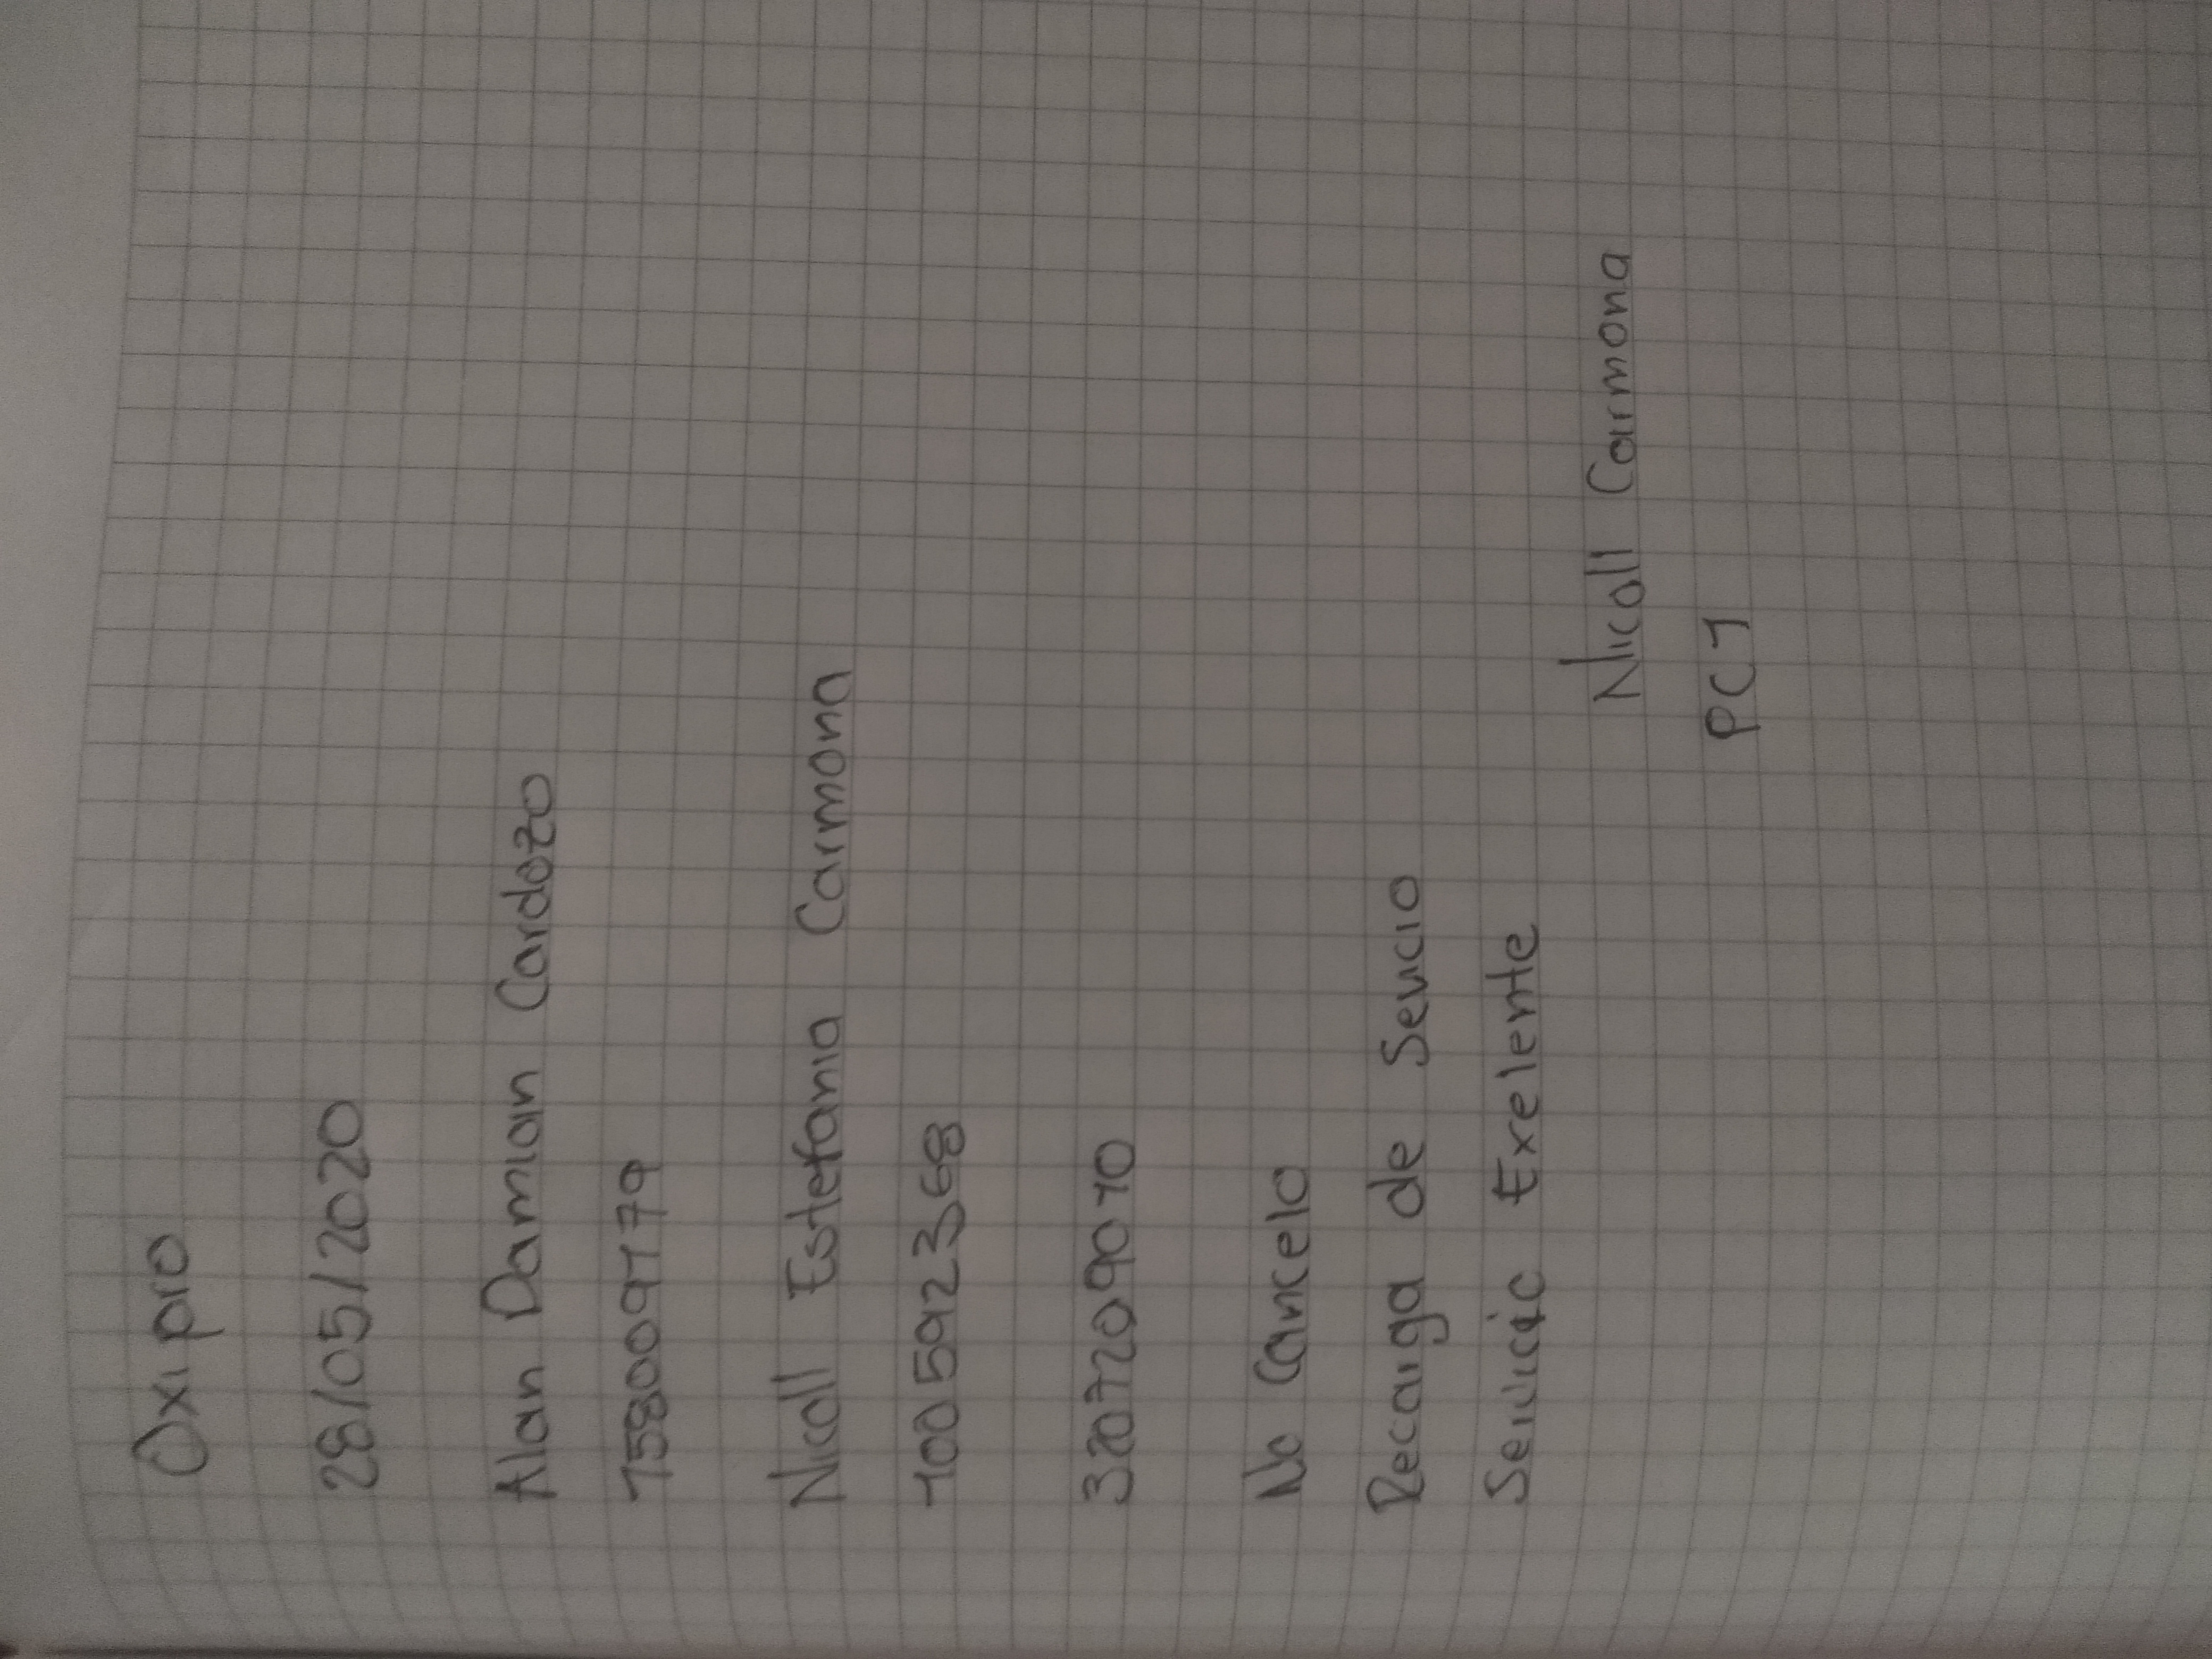 Oxi pro
28/05/2020
Alan Damian Cardozo
1580091179
Nicoll Estefania Carmona
100592368
3207209010
No Cancelo
Recarga de Sevicio
Servicio Exelente
Nicoll Carmona
PC1